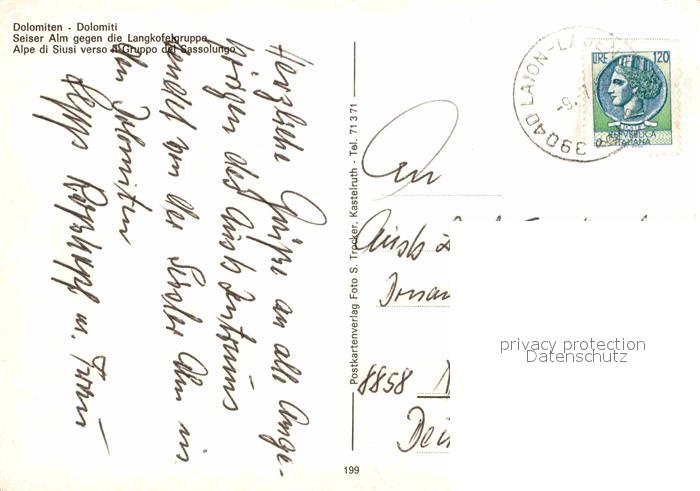 Dolomiten - Dolomiti
Seiser Alm gegen die Langkofelgruppe
Alpe di Siusi verso il Gruppo del Sassolungo
Herzliche Grüße an alle Ange-
hörigen des Aussb Zentrums
sendet von der Seiser Alm in
den Dolomiten
Sepp u. Frau
Postkartenverlag Foto S. Trocker, Kastelruth - Tel. 71371
199
39040 LAION-LA
LIRE 120
POSTE
REPUBBLICA
ITALIANA
An
Donau
8858
privacy protection
Datenschutz